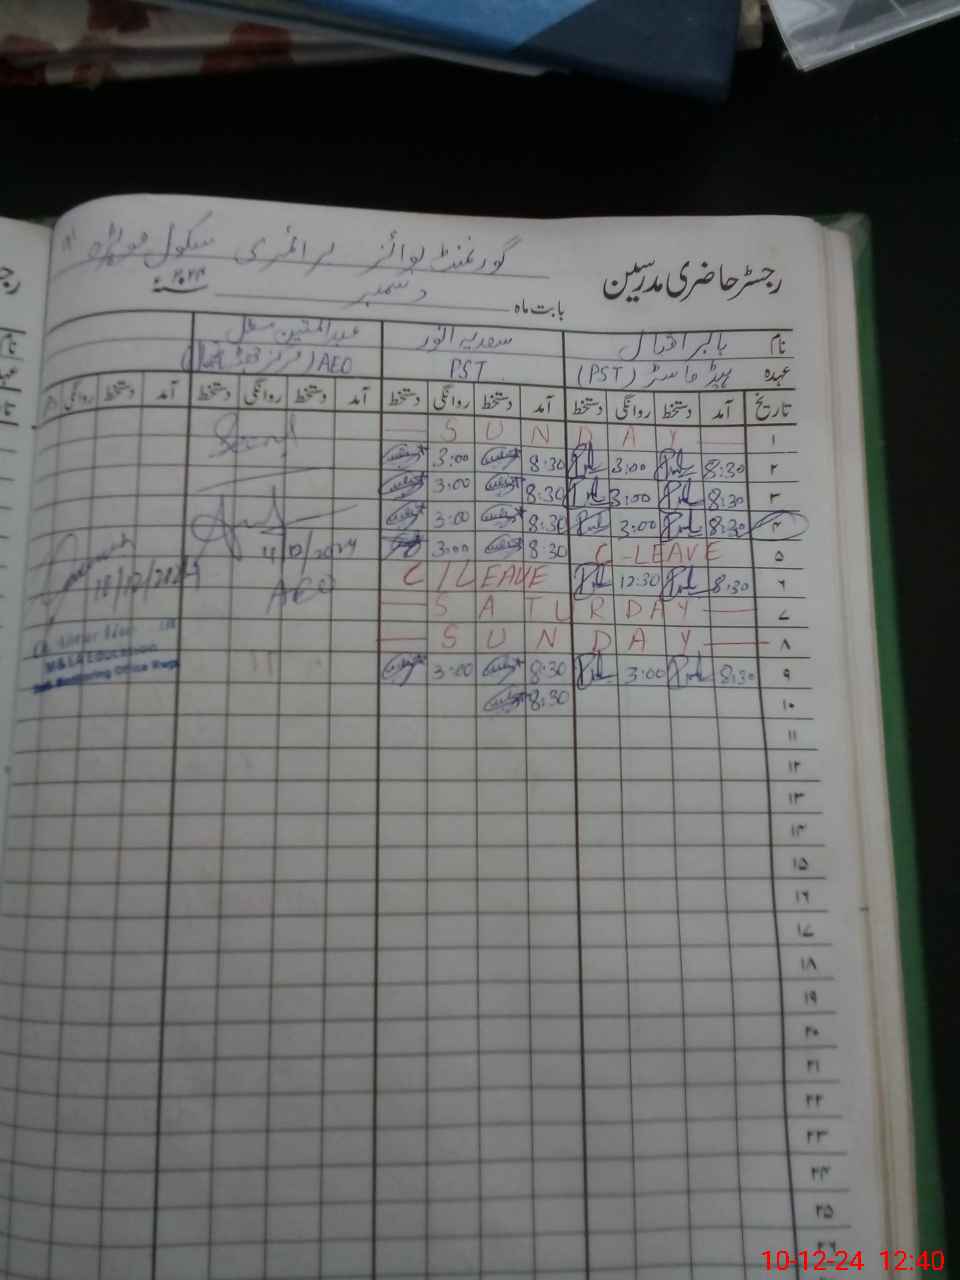 گورنمنٹ بوائز پرائمری سکول
رجسٹر حاضری مدرسین
بابت ماہ دسمبر ۲۰۲۴
نام بابر اقبال سعدیہ انور
عہدہ ہیڈ ماسٹر (PST) PST AEO
تاریخ آمد دستخط روانگی دستخط آمد دستخط روانگی دستخط آمد دستخط روانگی دستخط آمد دستخط روانگی
۱ SUNDAY
۲ 8:30 3:00 8:30 3:00
۳ 8:30 3:00 8:30 3:00
۴ 8:30 3:00 8:30 3:00
۵ C-LEAVE 8:30 3:00 4/12/2024
۶ 8:30 12:30 C/LEAVE AEO 10/12/2024
۷ SATURDAY
۸ SUNDAY
M&EA EDUCATION
۹ 8:30 3:00 8:30 3:00
Monitoring Office
۱۰ 8:30
۱۱
۱۲
۱۳
۱۴
۱۵
۱۶
۱۷
۱۸
۱۹
۲۰
۲۱
۲۲
۲۳
۲۴
۲۵
۲۶
10-12-24 12:40